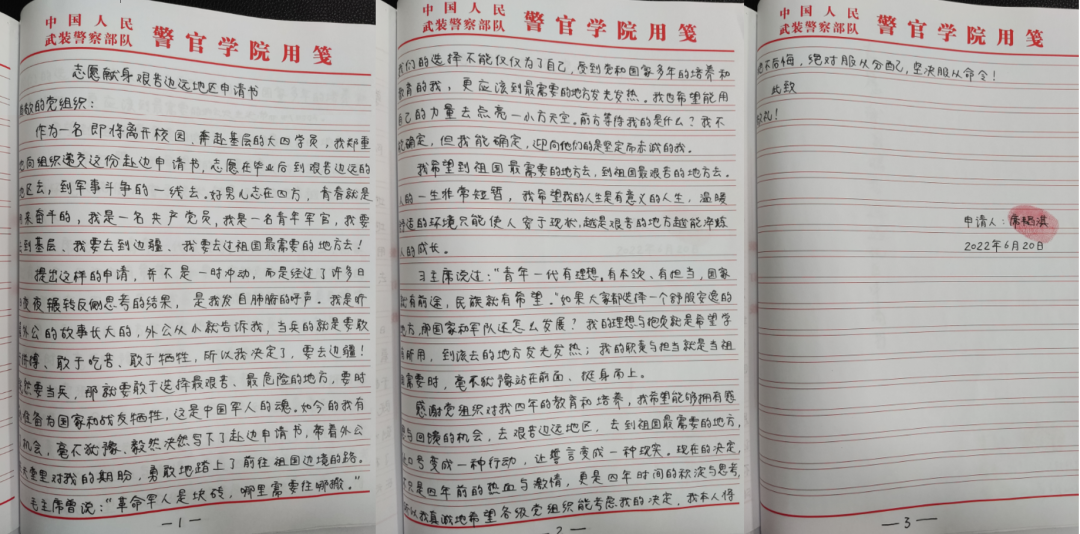 中国人民
武装警察部队 警官学院用笺
志愿献身艰苦边远地区申请书
敬的党组织：
作为一名即将离开校园、奔赴基层的大四学员，我郑重
地向组织递交这份赴边申请书，志愿在毕业后到艰苦边远的
地区去，到军事斗争的一线去。好男儿志在四方，青春就是
用来奋斗的，我是一名共产党员，我是一名青年军官，我要
去到基层、我要去到边疆、我要去这祖国最需要的地方去！
提出这样的申请，并不是一时冲动，而是经过了许多日
夜夜辗转反侧思考的结果，是我发自肺腑的呼声。我是听
着外公的故事长大的，外公从小就告诉我，当兵的就是要敢
于拼搏、敢于吃苦、敢于牺牲，所以我决定了，要去边疆！
然要当兵，那就要敢于选择最艰苦、最危险的地方，要时
准备为国家和战友牺牲，这是中国军人的魂。如今的我有
机会，毫不犹豫、毅然决然写下了赴边申请书，带着外公
里对我的期盼，勇敢地踏上了前往祖国边境的路。
毛主席曾说：“革命军人是块砖，哪里需要往哪搬。”
—1—
中国人民
武装警察部队 警官学院用笺
我们的选择不能仅仅为了自己，受到党和国家多年的培养和
教育的我，更应该到最需要的地方发光发热。我也希望能用
自己的力量去点亮一小方天空。前方等待我的是什么？我不
确定，但我能确定，迎向他们的是坚定而赤诚的我。
我希望到祖国最需要的地方去，到祖国最艰苦的地方去。
人的一生非常短暂，我希望我的人生是有意义的人生，温暖
舒适的环境只能使人安于现状，越是艰苦的地方越能淬炼
人的成长。
习主席说过：“青年一代有理想，有本领、有担当，国家
就有前途，民族就有希望。”如果大家都选择一个舒服安逸的
地方，那国家和军队还怎么发展？我的理想与抱负就是希望学
有所用，到该去的地方发光发热；我的职责与担当就是当祖
国需要时，毫不犹豫站在前面、挺身而上。
感谢党组织对我四年的教育和培养，我希望能够拥有感
恩与回馈的机会，去艰苦边远地区，去到祖国最需要的地方，
口号变成一种行动，让誓言变成一种现实。现在的决定，
不只是四年前的热血与激情，更是四年时间的积淀与思考，
所以我真诚地希望各级党组织能考虑我的决定，我本人将
—2—
中国人民
武装警察部队 警官学院用笺
绝不后悔，绝对服从分配，坚决服从命令！
此致
敬礼！
申请人：
2022年6月20日
—3—